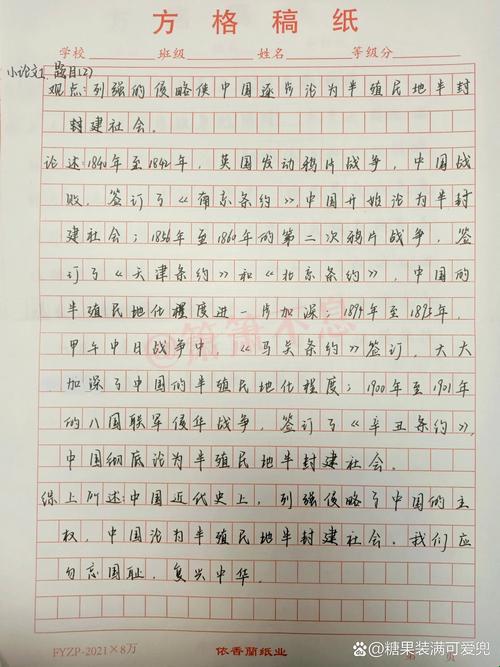 方格稿纸
学校 班级 姓名 等级分
小论文 题目(2)
观点:列强的侵略使中国逐步沦为半殖民地半封
封建社会。
论述:1840年至1842年,英国发动鸦片战争,中国战
败,签订了《南京条约》,中国开始沦为半封
建社会;1856年至1860年的第二次鸦片战争,签
订了《天津条约》和《北京条约》,中国的
半殖民地化程度进一步加深;1894年至1895年,
甲午中日战争中,《马关条约》签订,大大
加深了中国的半殖民地化程度;1900年至1901年
的八国联军侵华战争,签订了《辛丑条约》,
中国彻底沦为半殖民地半封建社会。
综上所述:中国近代史上,列强侵略了中国的主
权,中国沦为半殖民地半封建社会。我们应
勿忘国耻,复兴中华.
FYZP-2021×8万 依香蘭纸业 第 页
头条 @糖果装满可爱兜